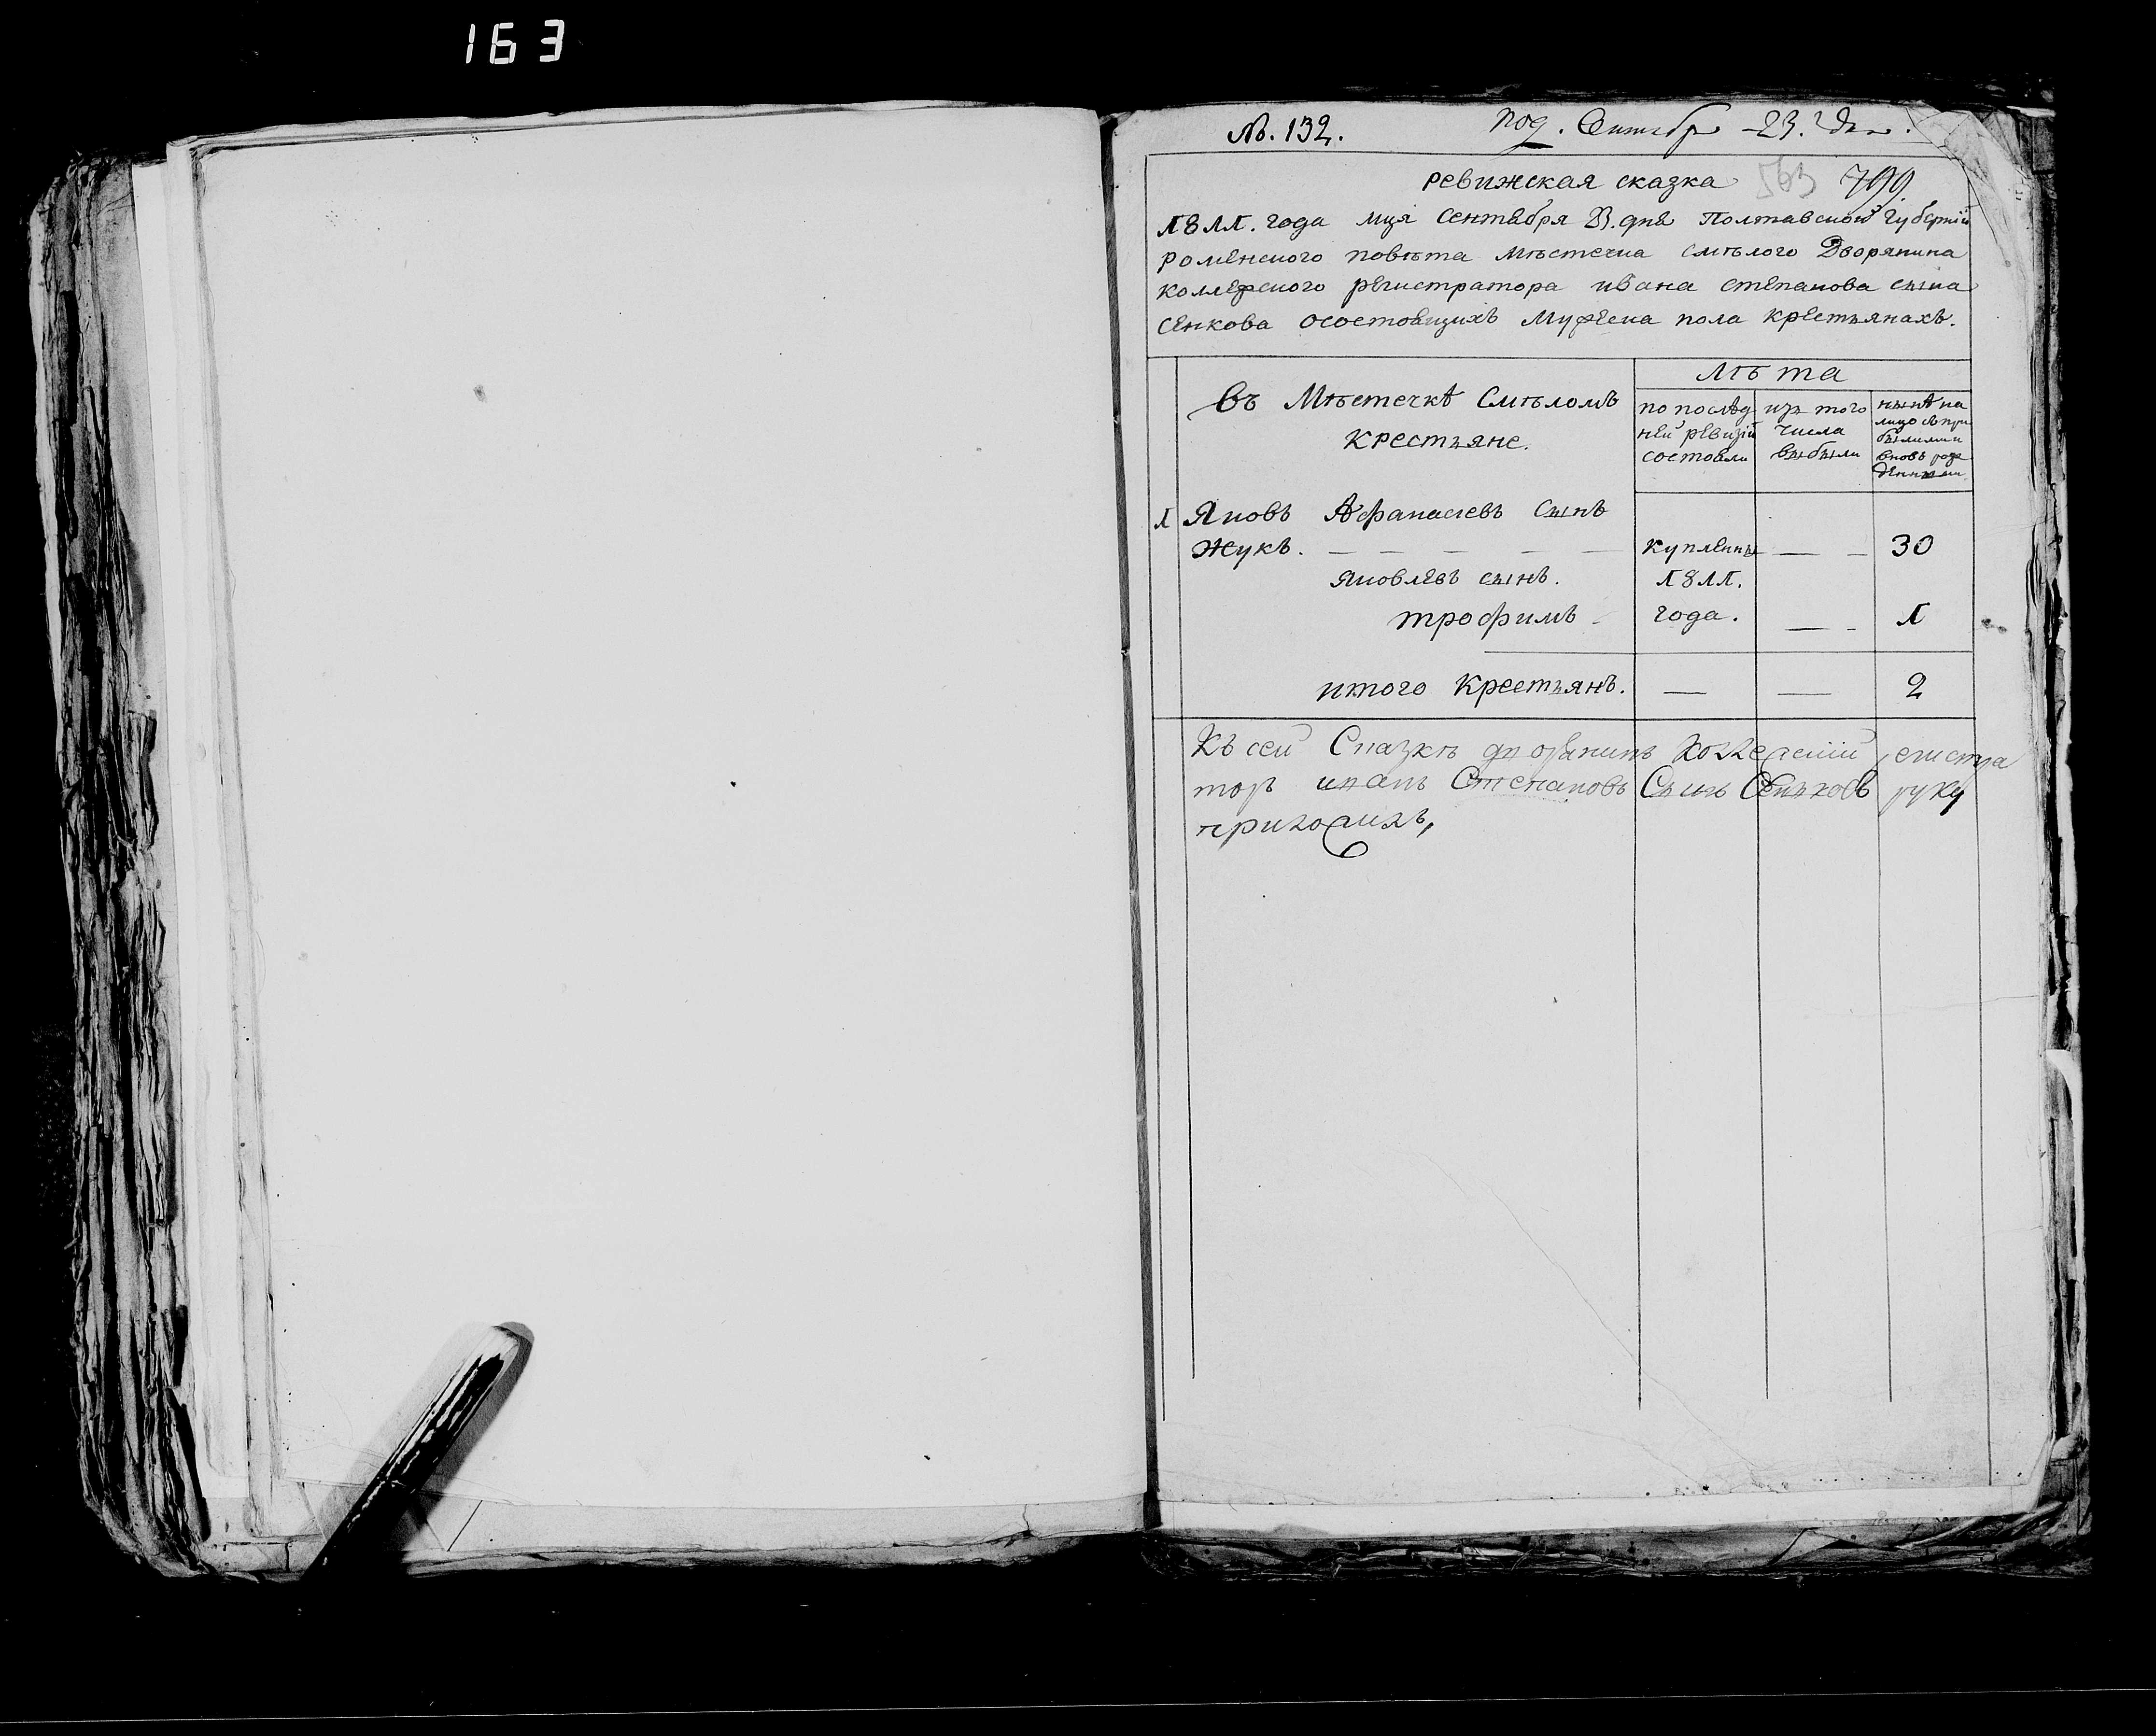 163
№. 132.
под. Сентябр 23. дня.
ревижская сказка 563 799
1811. года мця Сентября 23. дня Полтавской Губерніи
роменского повѣта мѣстечка смѣлого Дворянина
коллежского регистратора ивана степанова сына
сенкова осостоящихъ мужеска пола крестьянахъ.
Въ Мѣстечкѣ Смѣломъ
Крестьяне.
лѣта
по послѣд
ней ревизіи
состояли
изъ того
числа
выбыли
нынѣ на
лицо съ при
былыми и
вновь рож
денными
1 Яковъ Афанасіевъ сынъ
Жукъ. купленны 30
Яковлевъ сынъ. 1811.
трофимъ года. 1
итого Крестьянъ. 2
Къ сей Сказкѣ дворянинъ Коллежскій регистра
торъ иванъ Степановъ Сынъ Сеньковъ руку
приложилъ,